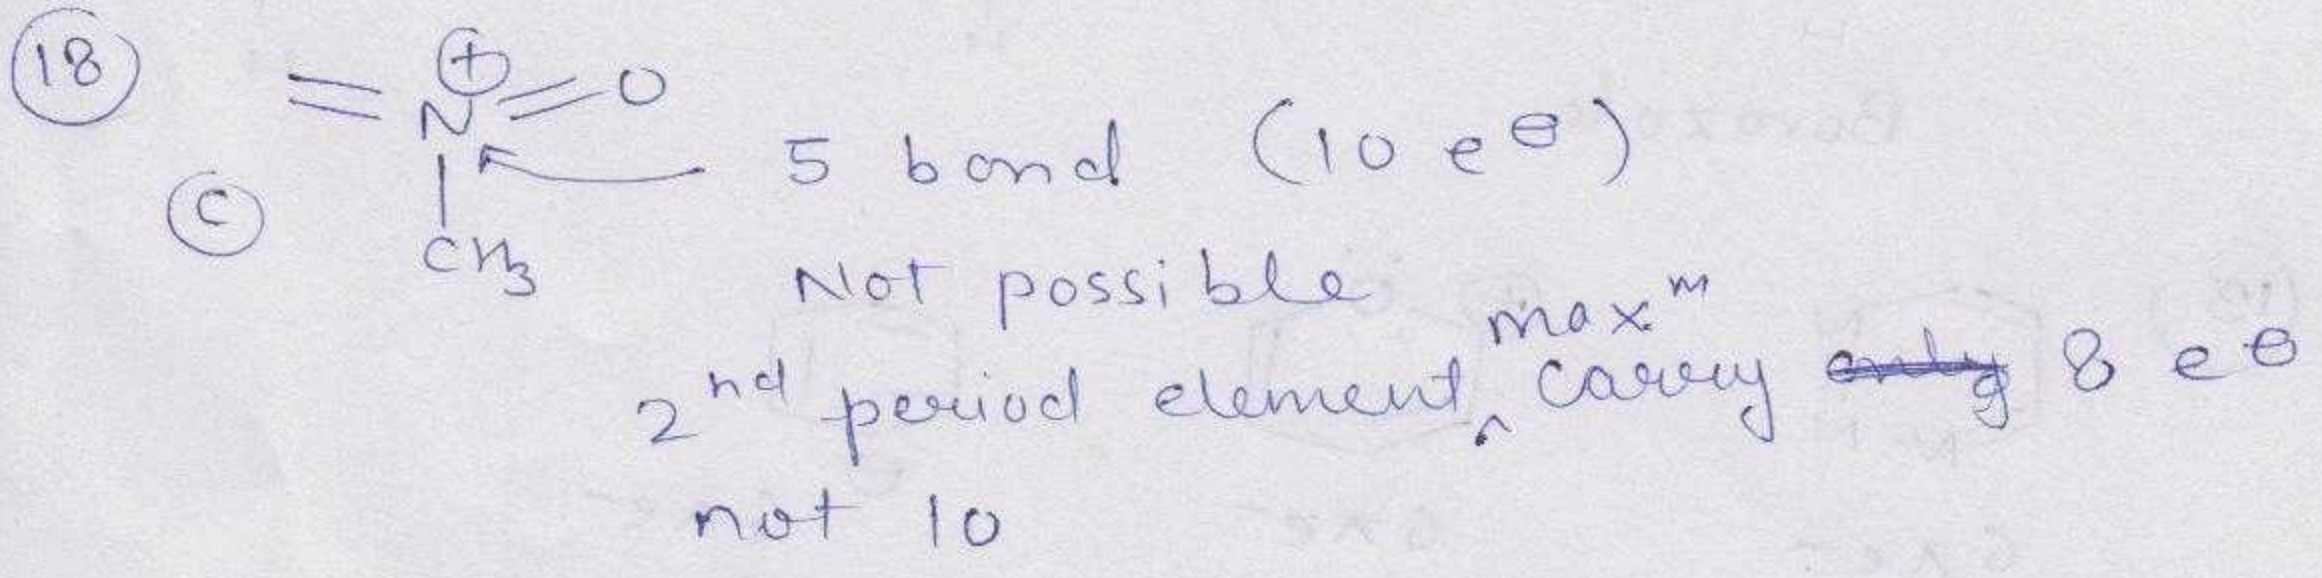 18
⊕
= N = O
C
CH3
5 bond (10 e⊖)
Not possible
2nd period element maxm carry 8 e⊖
not 10